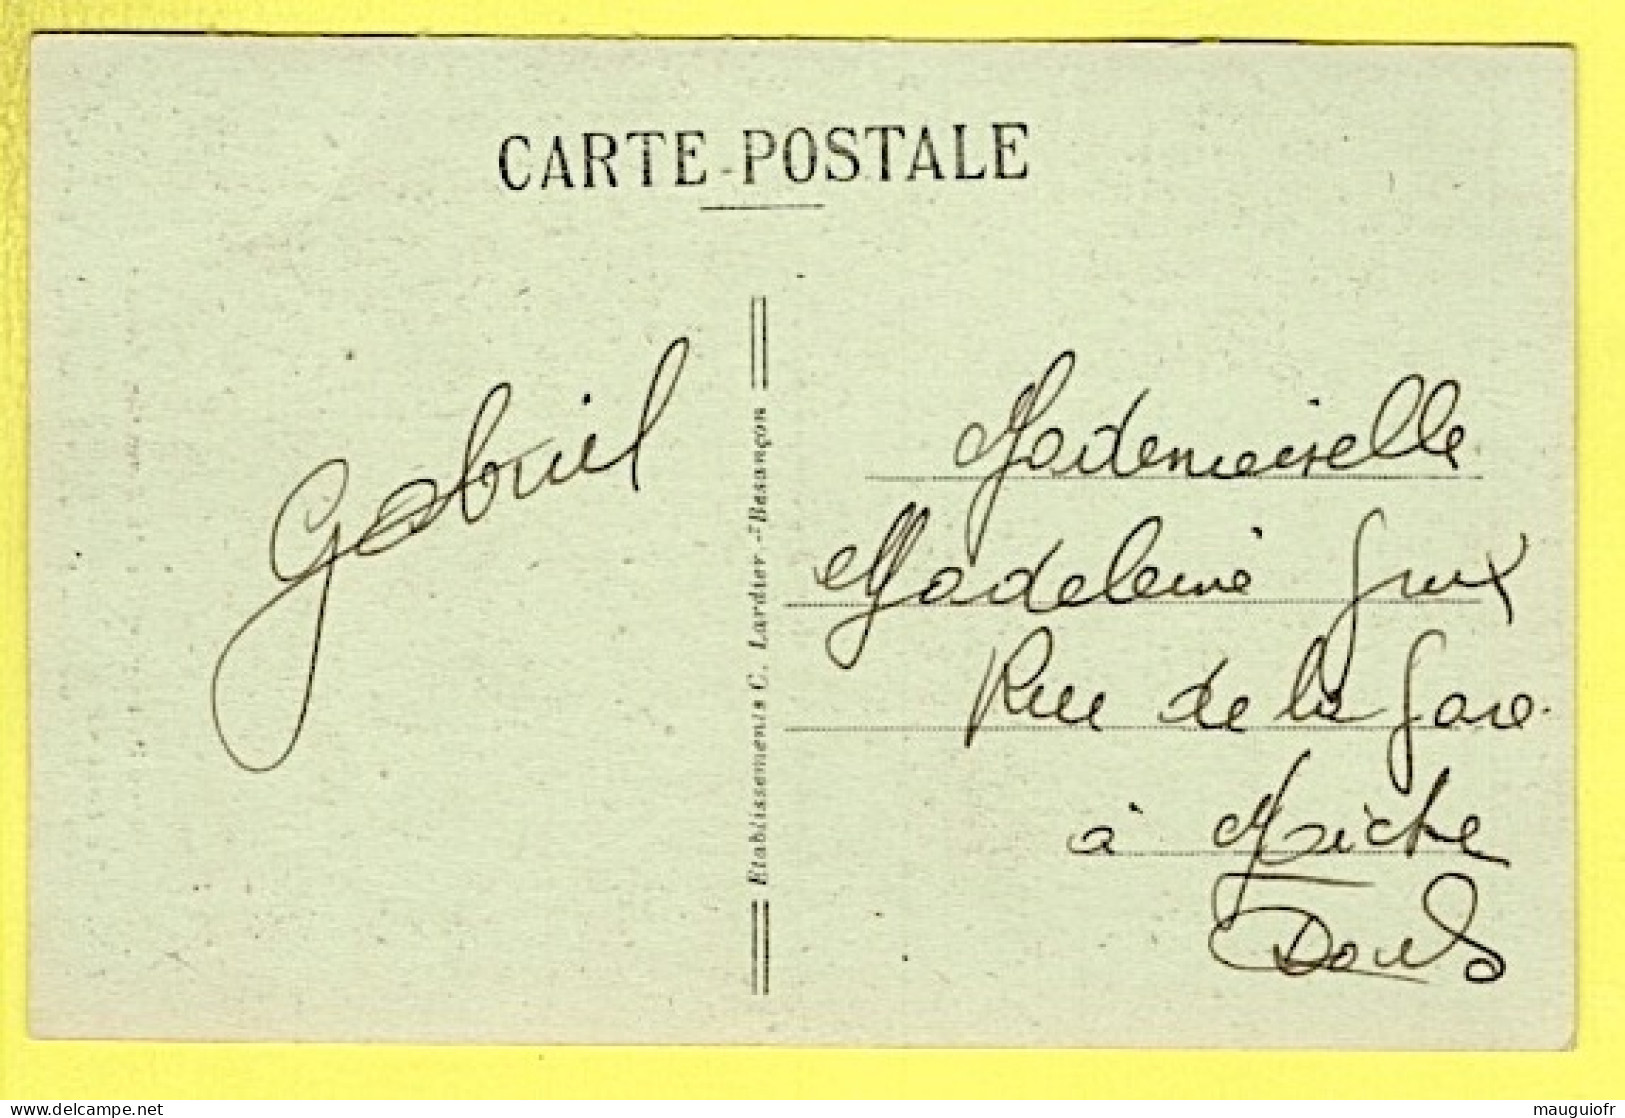 CARTE-POSTALE
Gabriel
Etablissements C. Lardier - Besançon
Mademoiselle
Madeleine
Rue de la Gare
à Maiche
Doubs
delcampe.net
mauguiofr